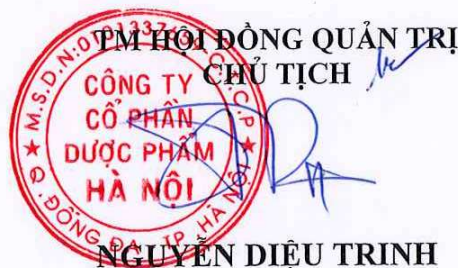 TM HỘI ĐỒNG QUẢN TRỊ
CHỦ TỊCH
CÔNG TY
CỔ PHẦN
DƯỢC PHẨM
HÀ NỘI
Q. ĐỐNG ĐA TP. HÀ NỘI
NGUYỄN DIỆU TRINH